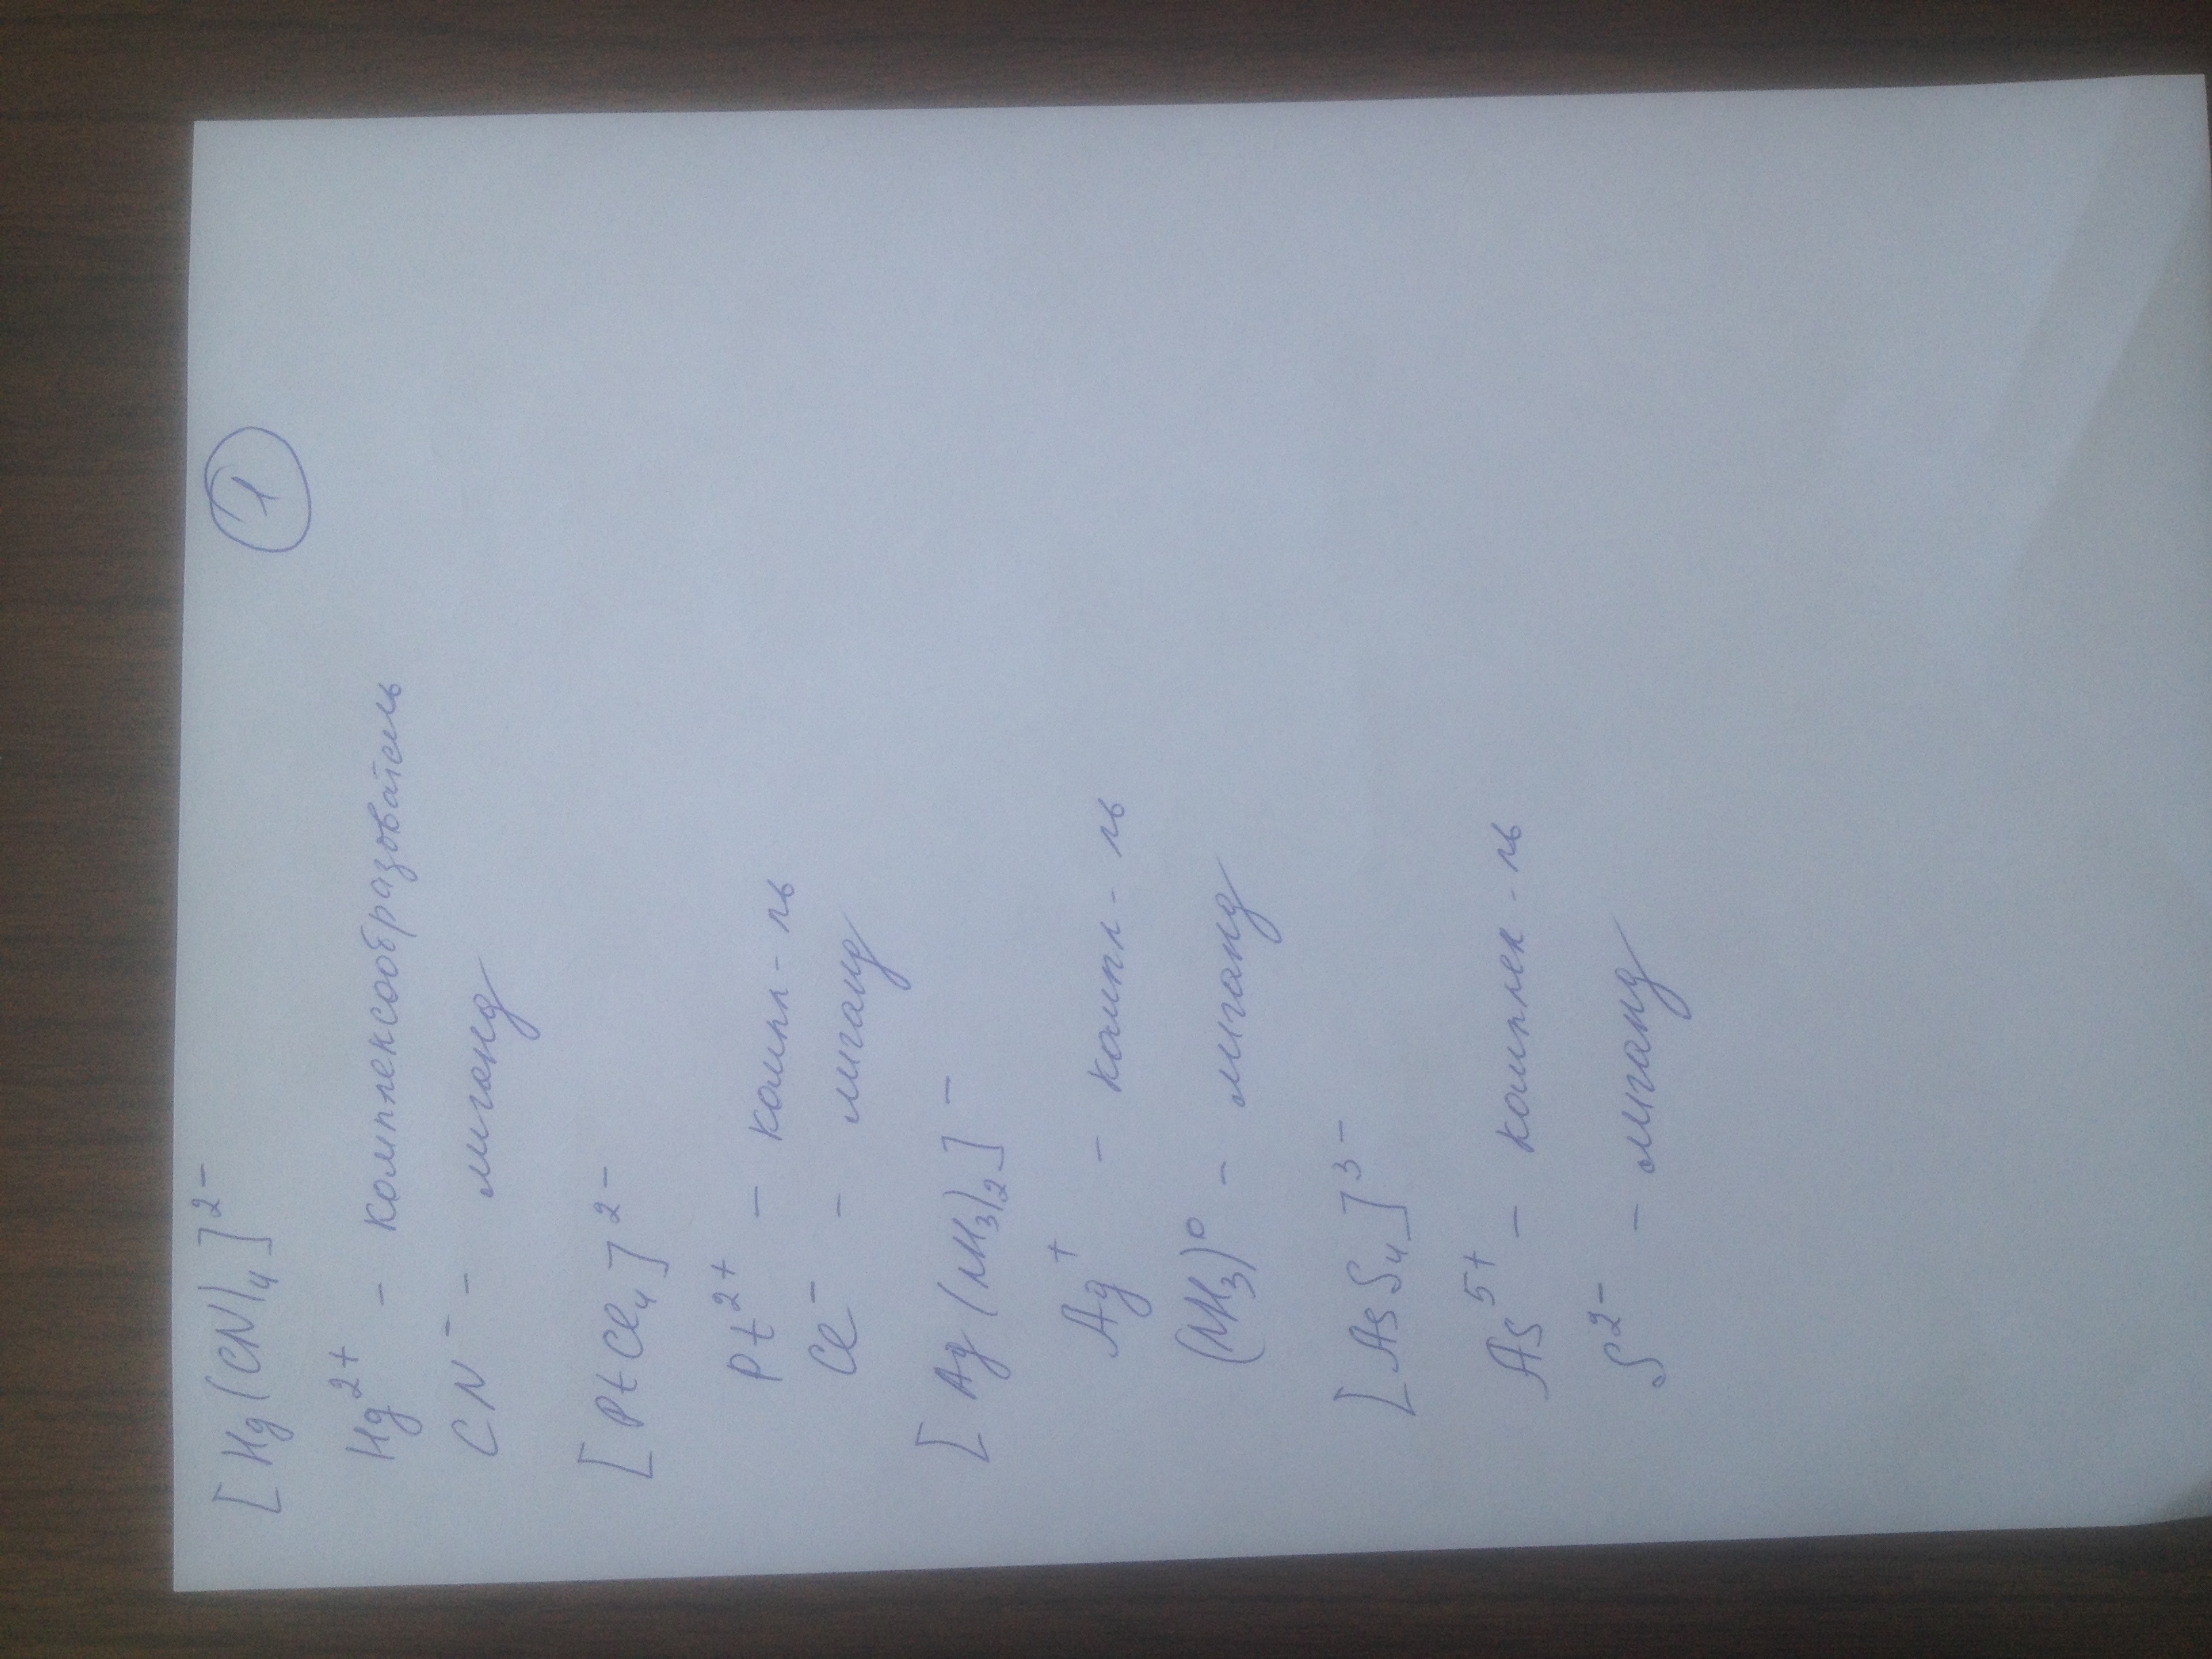 ①
[Hg(CN)₄]²⁻
Hg²⁺ – комплексообразователь
CN⁻ – лиганд
[PtCl₄]²⁻
Pt²⁺ – компл-ль
Cl⁻ – лиганд
[Ag(NH₃)₂]⁻
Ag⁺ – компл-ль
(NH₃)⁰ – лиганд
[AsS₄]³⁻
As⁵⁺ – комплек-ль
S²⁻ – лиганд